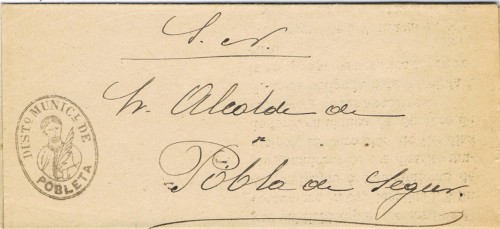 S. N.
Sr. Alcalde de
Pobla de Segur.
DISTO. MUNICL. DE
POBLETA